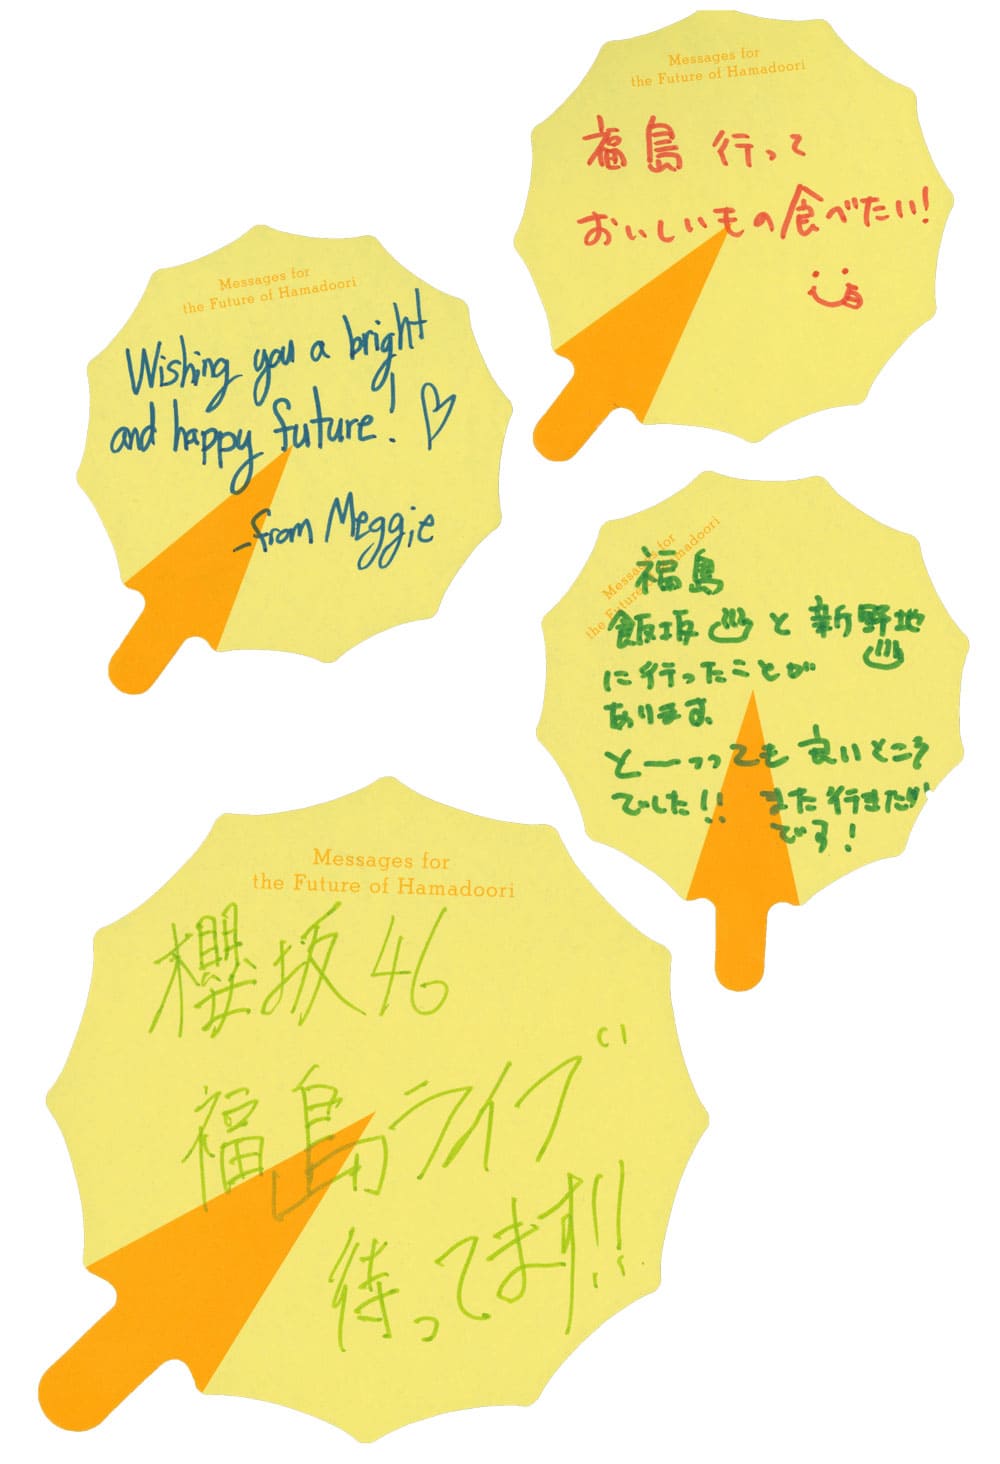 Messages for
the Future of Hamadoori
福島 行って
おいしいもの食べたい!
Messages for
the Future of Hamadoori
Wishing you a bright
and happy future! ♡
-from Meggie
Messages for
the Future of Hamadoori
福島
飯坂♨と新野地
♨
に行ったことが
あります。
とーっっても良いところ
でした!! また行きたい
です!
Messages for
the Future of Hamadoori
櫻坂46
福島ライブ
待ってます!!